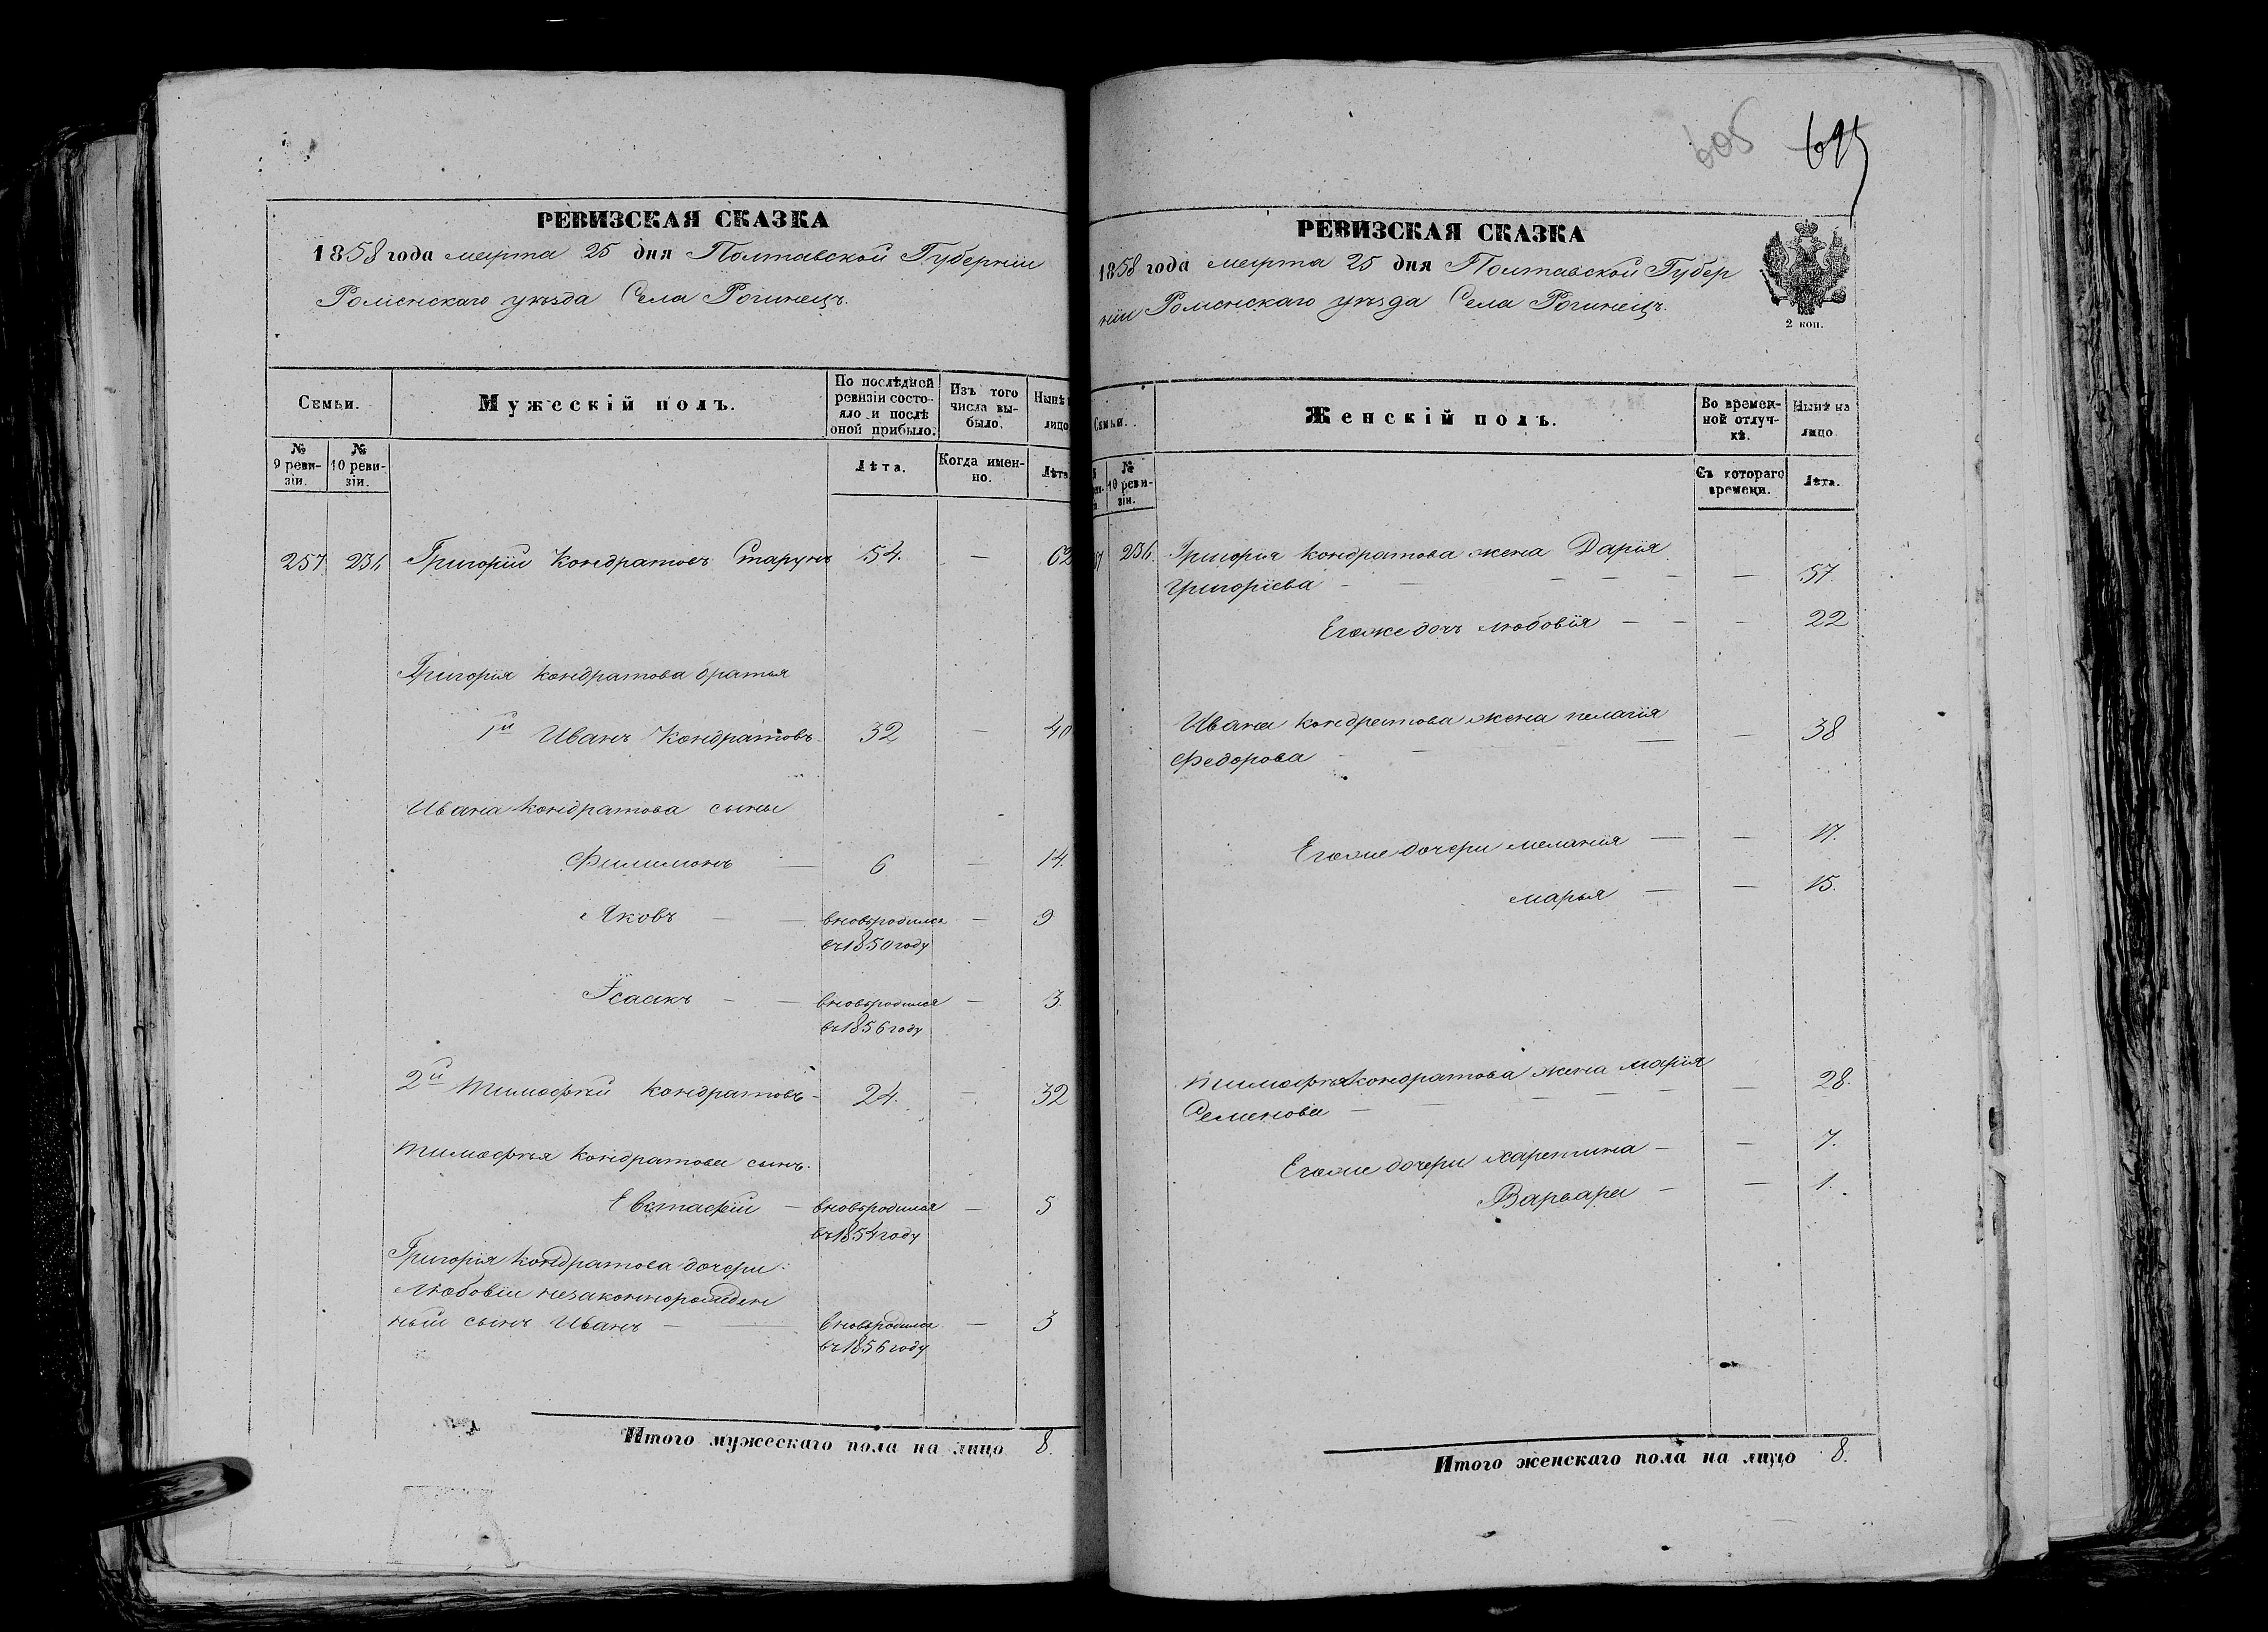 605 695
РЕВИЗСКАЯ СКАЗКА
1858 года марта 25 дня Полтавской Губерніи
Роменскаго уѣзда Села Рогинецъ.
Семьи.
Мужескій полъ.
По послѣдней ревизіи состояло и послѣ оной прибыло.
Изъ того числа выбыло.
Нынѣ
лицо
№ 9 ревизіи.
№ 10 ревизіи.
Лѣта.
Когда именно.
Лѣта
257 236 Григорій Кондратовъ Старунъ 54. — 62
Григорія Кондратова братья
1й Иванъ Кондратовъ 32 — 40
Ивана Кондратова сыны
Филимонъ — 6 — 14.
Яковъ — — вновьродился — 9
въ 1850 году
Ісаакъ — — вновьродился — 3.
въ 1856 году
2й Тимофѣй Кондратовъ — 24. — 32
Тимофѣя Кондратова сынъ.
Евстафій — вновьродился — 5
въ 1854 году
Григорія Кондратова дочери
Любовіи незаконнорожден
ный сынъ Иванъ — вновьродился — 3
въ 1856 году
Итого мужескаго пола на лицо 8.
РЕВИЗСКАЯ СКАЗКА
1858 года марта 25 дня Полтавской Губер
ніи Роменскаго уѣзда Села Рогинецъ.
2 коп.
Семьи.
Женскій полъ.
Во временной отлучкѣ.
Нынѣ на лицо
№ 10 ревизіи.
Съ котораго времени.
Лѣта.
57 236. Григорія Кондратова жена Дарія
Григоріева — — — — — — 57.
Егоже дочь Любовія — — — 22
Ивана Кондратова жена Пелагія
Федорова — — — — — 38
Егоже дочери Меланія — — 17.
Марья — — 15.
Тимофѣя Кондратова жена Марія
Семенова — — — — — — 28.
Егоже дочери Харетина — — 7.
Варвара — — 1.
Итого женскаго пола на лицо 8.